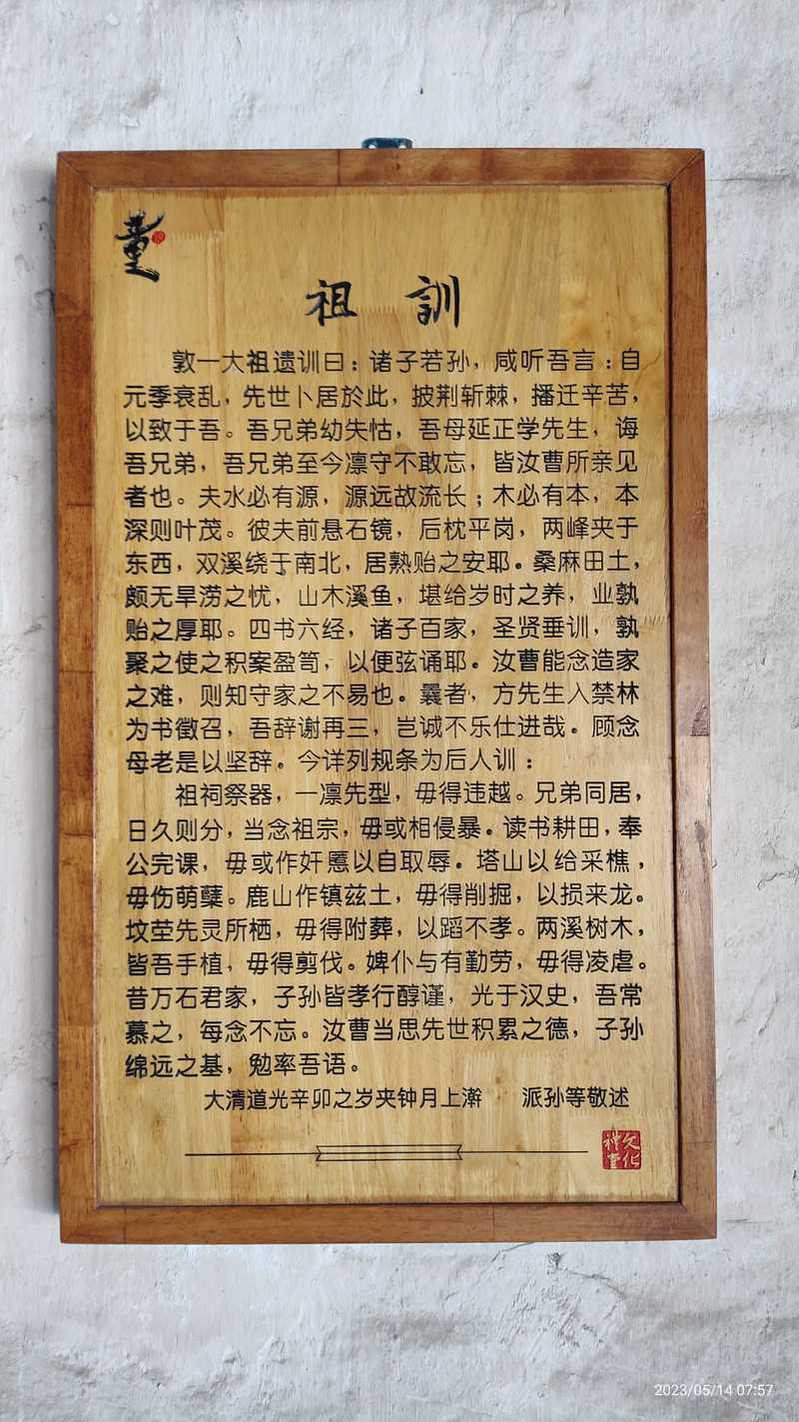 童
祖 訓
敦一大祖遗训曰：诸子若孙，咸听吾言：自
元季衰乱，先世卜居於此，披荆斩棘，播迁辛苦，
以致于吾。吾兄弟幼失怙，吾母延正学先生，诲
吾兄弟，吾兄弟至今凛守不敢忘，皆汝曹所亲见
者也。夫水必有源，源远故流长；木必有本，本
深则叶茂。彼夫前悬石镜，后枕平岗，两峰夹于
东西，双溪绕于南北，居熟贻之安耶。桑麻田土，
颇无旱涝之忧，山木溪鱼，堪给岁时之养，业孰
贻之厚耶。四书六经，诸子百家，圣贤垂训，孰
聚之使之积案盈笥，以便弦诵耶。汝曹能念造家
之难，则知守家之不易也。曩者，方先生入禁林
为书徵召，吾辞谢再三，岂诚不乐仕进哉。顾念
母老是以坚辞。今详列规条为后人训：
祖祠祭器，一凛先型，毋得违越。兄弟同居，
日久则分，当念祖宗，毋或相侵暴。读书耕田，奉
公完课，毋或作奸慝以自取辱。塔山以给采樵，
毋伤萌蘖。鹿山作镇兹土，毋得削掘，以损来龙。
坟茔先灵所栖，毋得附葬，以蹈不孝。两溪树木，
皆吾手植，毋得剪伐。婢仆与有勤劳，毋得凌虐。
昔万石君家，子孙皆孝行醇谨，光于汉史，吾常
慕之，每念不忘。汝曹当思先世积累之德，子孙
绵远之基，勉率吾语。
大清道光辛卯之岁夹钟月上澣 派孙等敬述
文化
2023/05/14 07:57